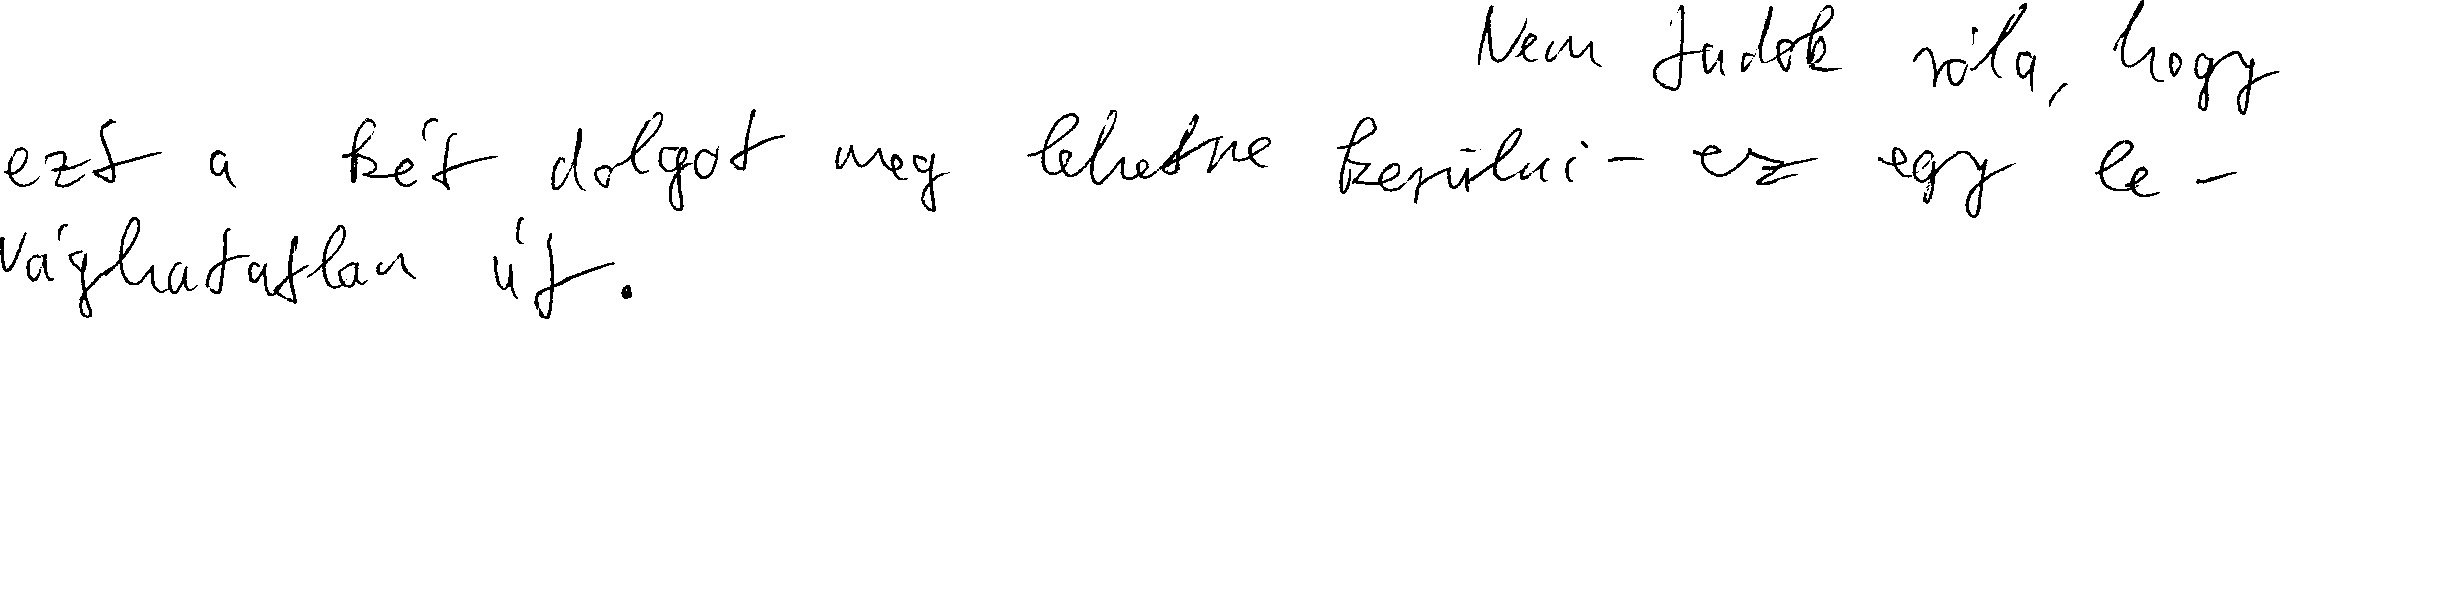 Nem tudok róla, hogy
ezt a két dolgot meg lehetne kerülni - ez egy le-
vághatatlan út.